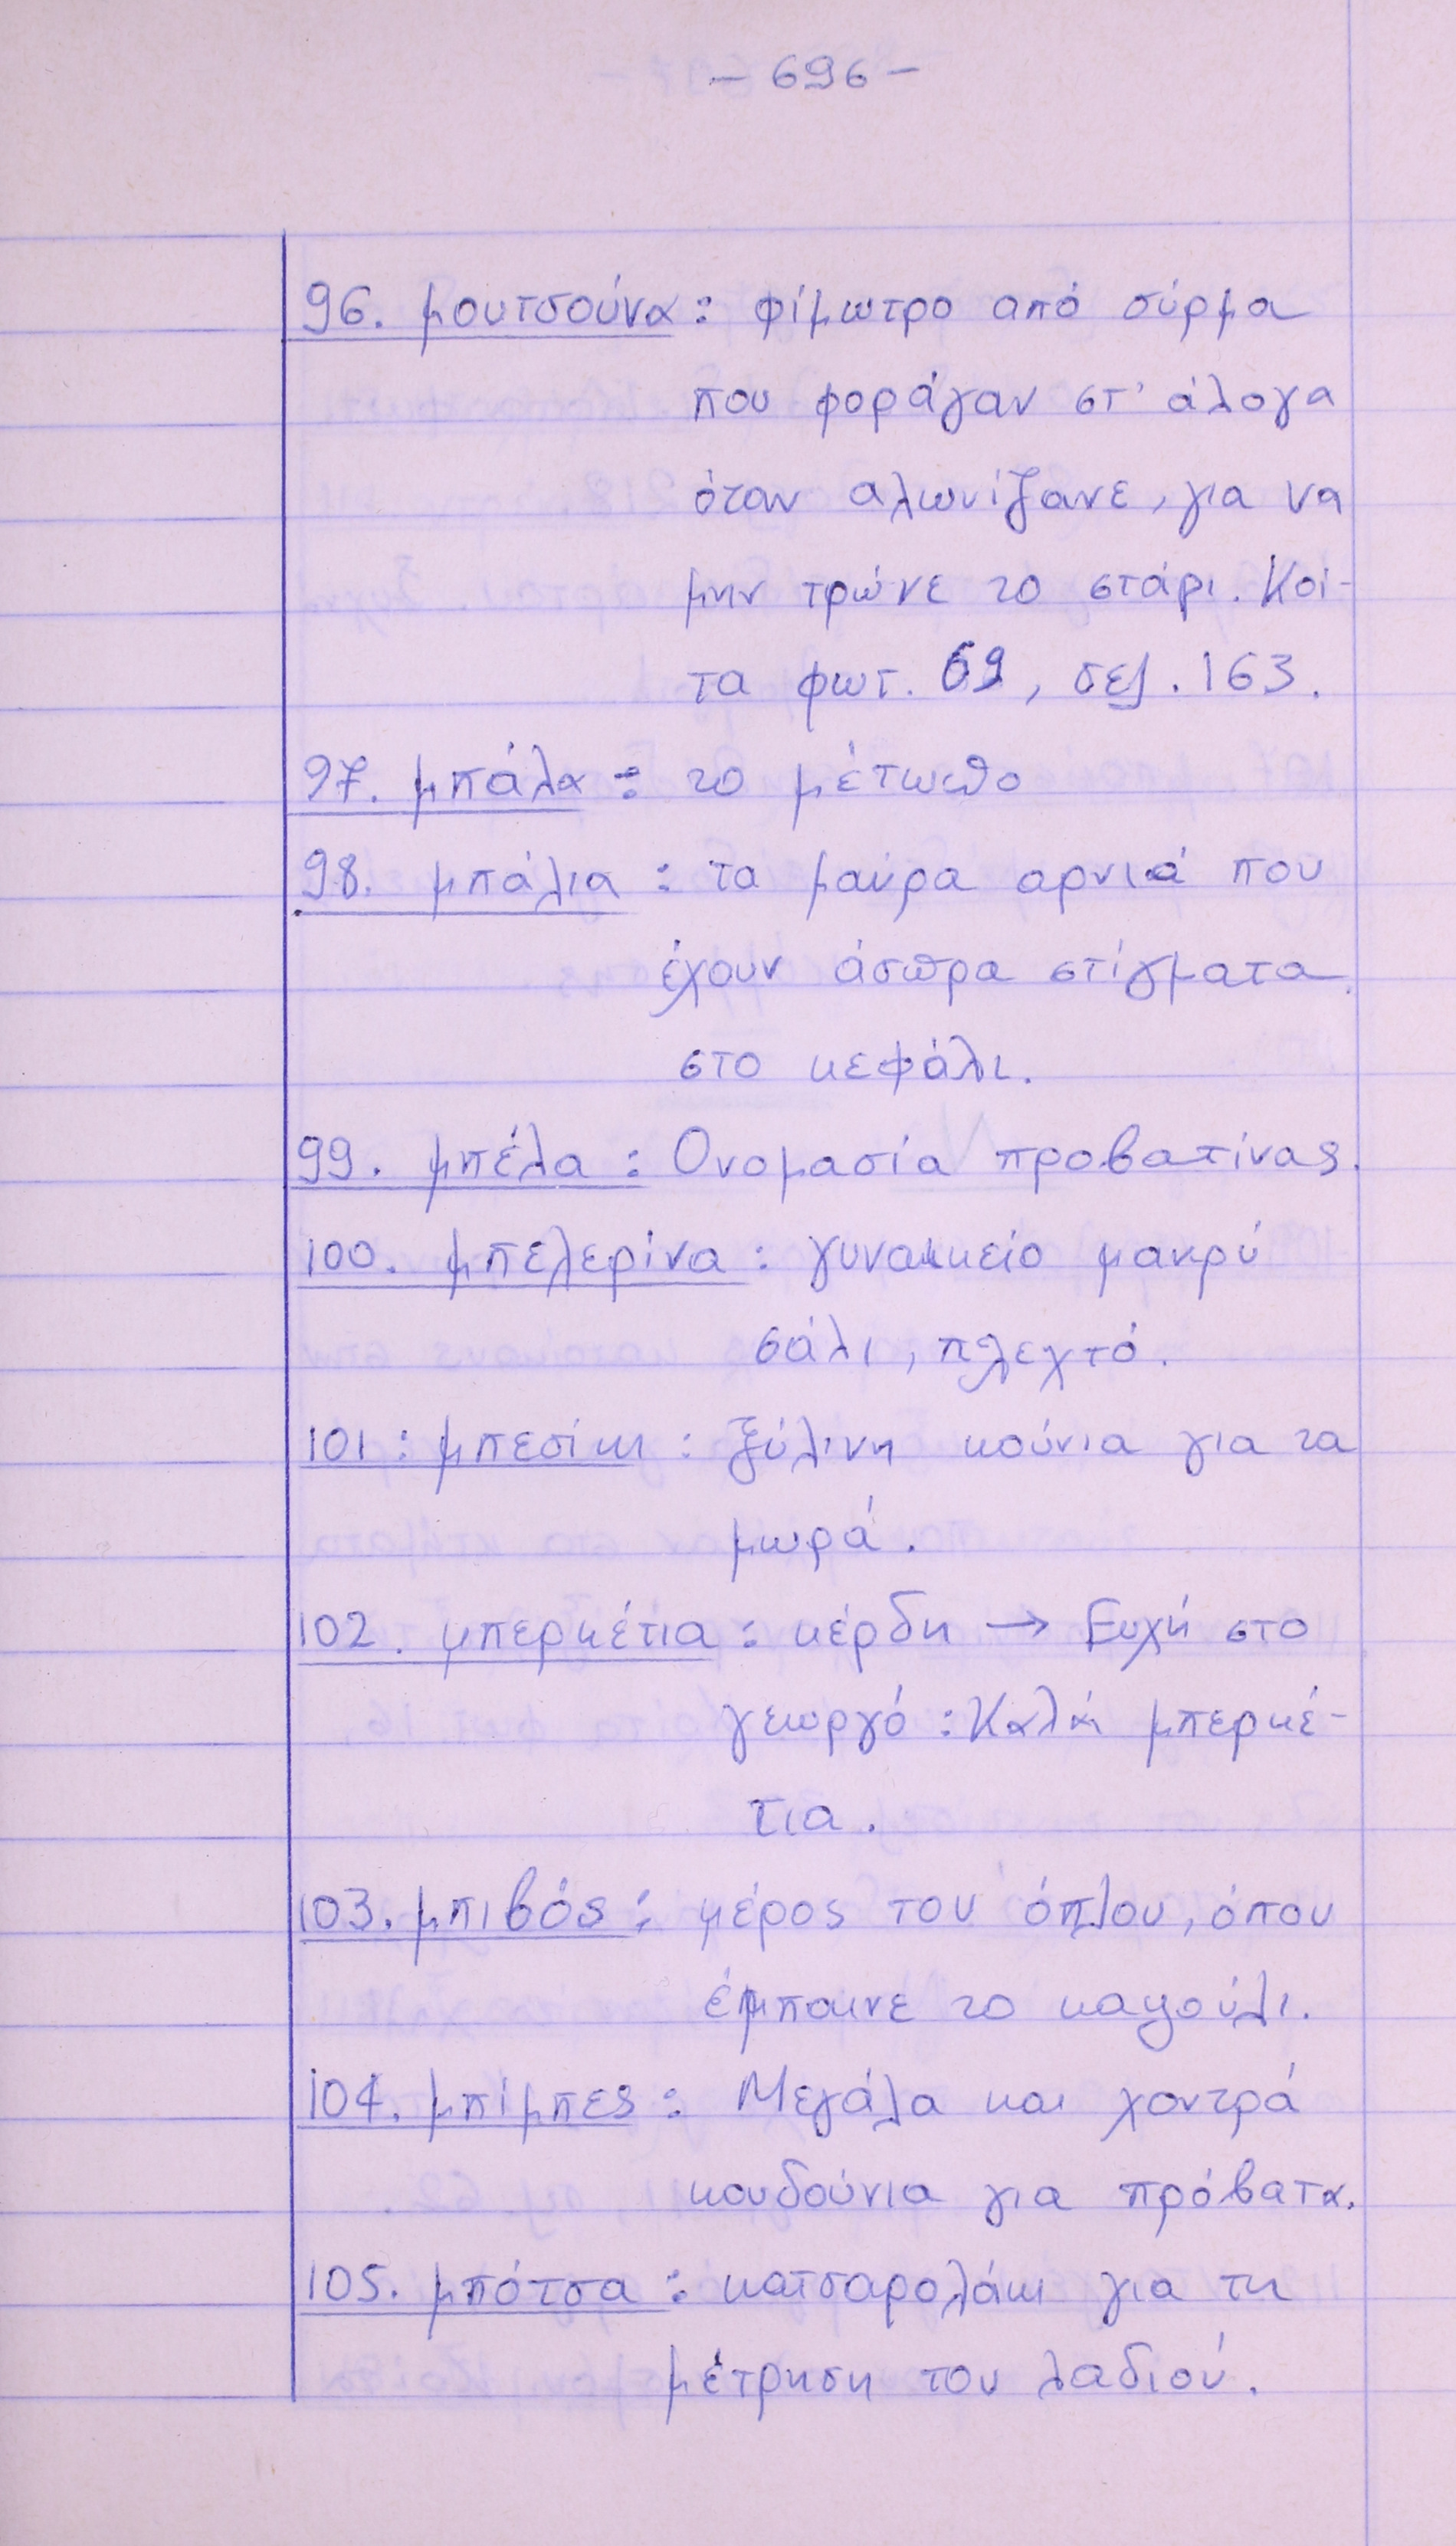 - 696 -
96. μουτσούνα : φίμωτρο από σύρμα
που φοράγαν στ' άλογα
όταν αλωνίζανε, για να
μην τρώνε το στάρι. Κοί-
τα φωτ. 69, σελ. 163.
97. μπάλα : το μέτωπο
98. μπάλια : τα μαύρα αρνιά που
έχουν άσπρα στίγματα
στο κεφάλι.
99. μπέλα : Ονομασία προβατίνας.
100. μπελερίνα : γυναικείο μακρύ
σάλι, πλεχτό.
101 : μπεσίκι : ξύλινη κούνια για τα
μωρά.
102. μπερκέτια : κέρδη → Ευχή στο
γεωργό : Καλά μπερκέ-
τια.
103. μπιβός : μέρος του όπλου, όπου
έμπαινε το καψούλι.
104. μπίμπες : Μεγάλα και χοντρά
κουδούνια για πρόβατα.
105. μπότσα : κατσαρολάκι για τη
μέτρηση του λαδιού.